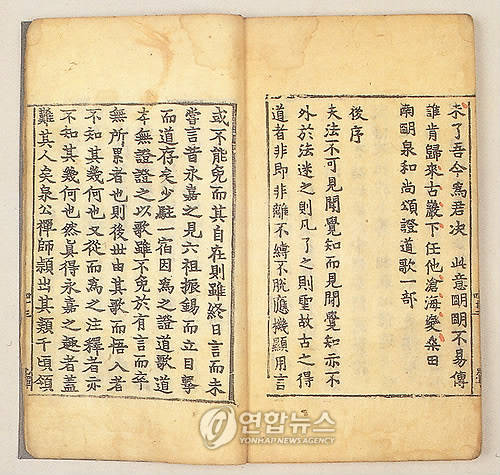 未了吾今爲君决 此意明明不易傳
誰肯歸來古巖下任他滄海變桑田
南明泉和尚頌證道歌一部
後序
夫法不可見聞覺知而見聞覺知亦不
外於法迷之則凡了之則聖故古之得
道者非即非離不縛不脫應機顯用言
或不能免而其自在則雖終日言而未
嘗言昔永嘉之見六祖振錫而立目擊
而道存矣少駐一宿因爲之證道歌道
本無證證之以歌雖不免於有言而卒
無所累者也則後世由其歌而悟入者
不知其幾何也又從而爲之注釋者亦
不知其幾何也然眞得永嘉之趣者蓋
難其人矣泉公禪師頴出其類千頃領
연합뉴스
YONHAP NEWS AGENCY